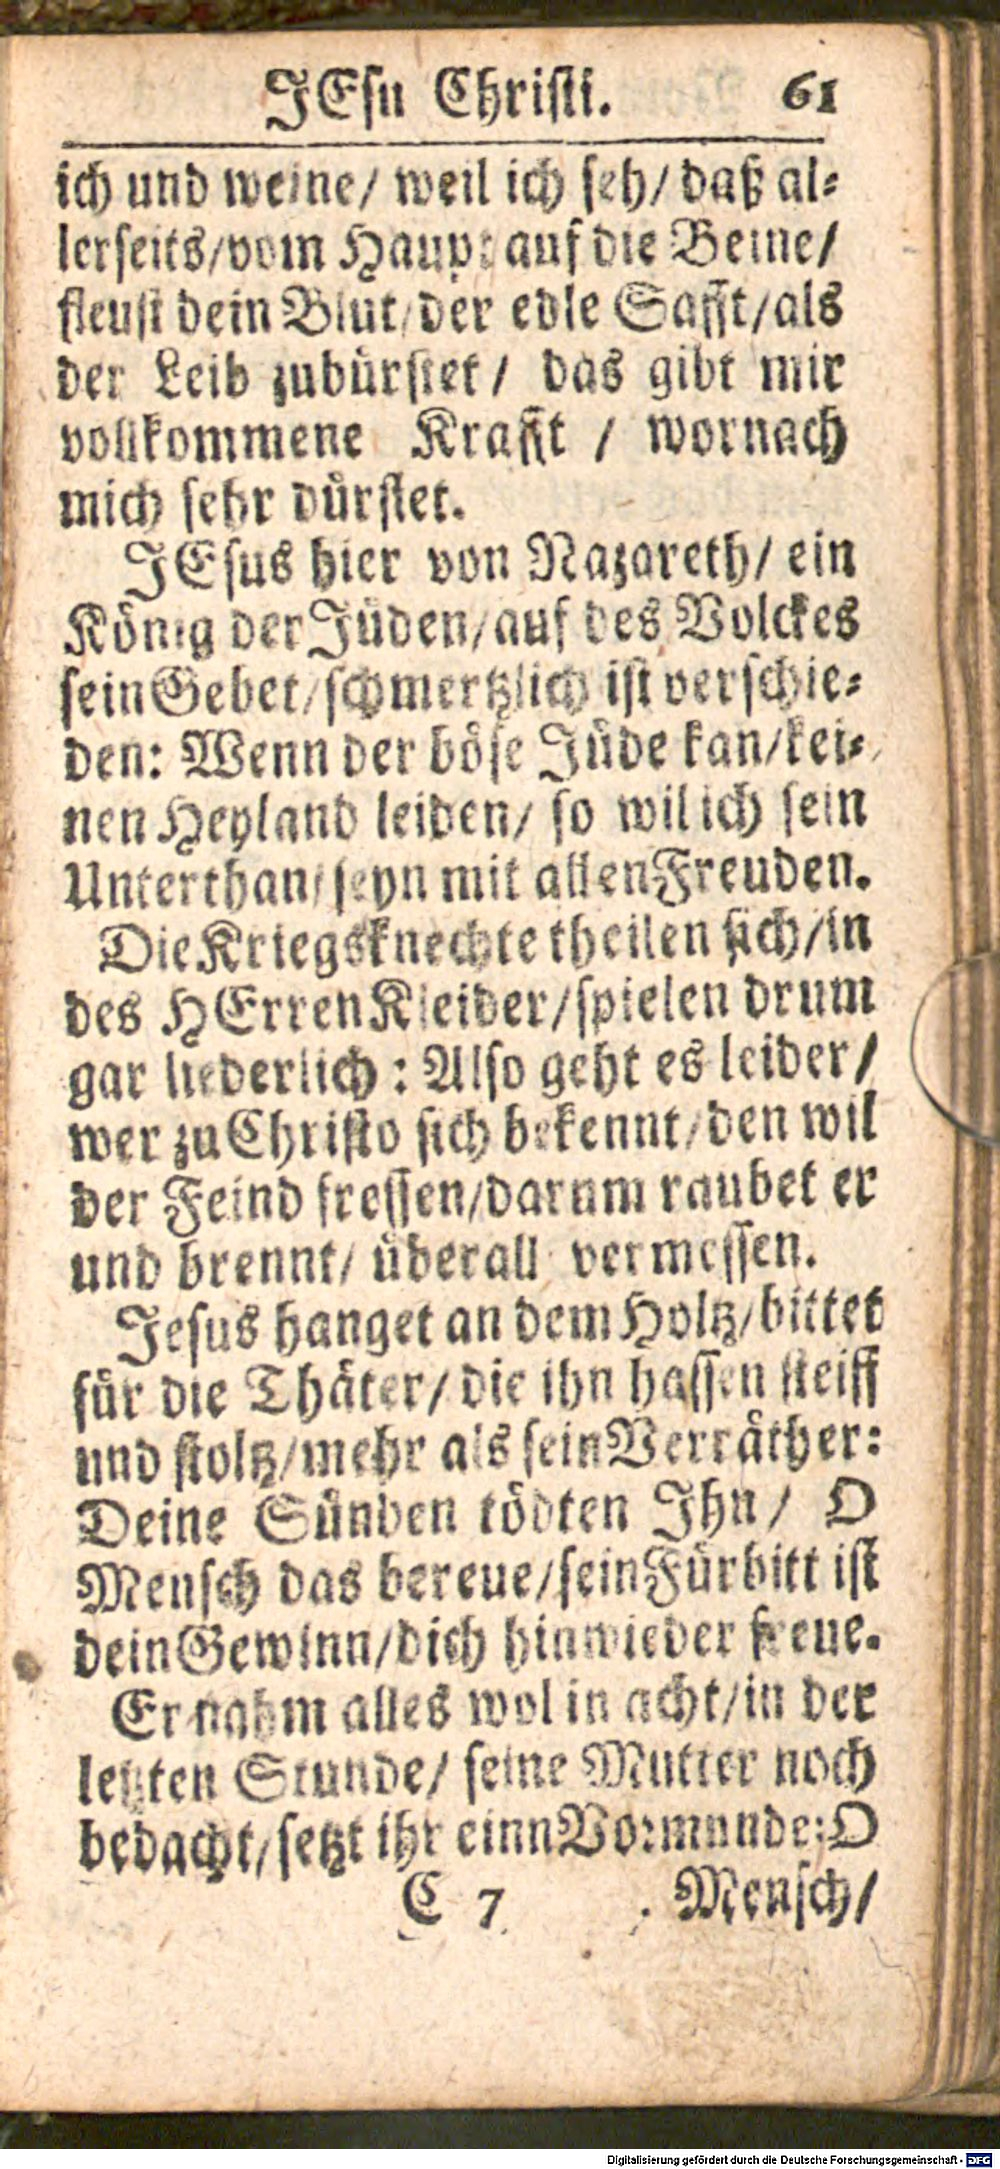 JEsu Christi. 61
ich und weine/ weil ich seh/ daß al⸗
lerseits/vom Haupt auf die Beine/
fleust dein Blut/der edle Safft/als
der Leib zubürstet/ das gibt mir
vollkommene Krafft / wornach
mich sehr dürstet.
JEsus hier von Nazareth/ ein
König der Jüden/auf des Volckes
sein Gebet/schmertzlich ist verschie⸗
den: Wenn der böse Jüde kan/kei⸗
nen Heyland leiden/ so wil ich sein
Unterthan/seyn mit allen Freuden.
Die Kriegsknechte theilen sich/in
des HErren Kleider/spielen drum
gar liederlich: Also geht es leider/
wer zu Christo sich bekennt/den wil
der Feind fressen/darum raubet er
und brennt/ überall vermessen.
Jesus hanget an dem Holtz/bittet
für die Thäter/ die ihn hassen steiff
und stoltz/mehr als sein Verräther:
Deine Sünden tödten Ihn/ O
Mensch das bereue/sein Fürbitt ist
dein Gewinn/dich hinwieder freue.
Er nahm alles wol in acht/in der
letzten Stunde/ seine Mutter noch
bedacht/setzt ihr einn Vormunde:O
C 7 Mensch/
Digitalisierung gefördert durch die Deutsche Forschungsgemeinschaft - DFG